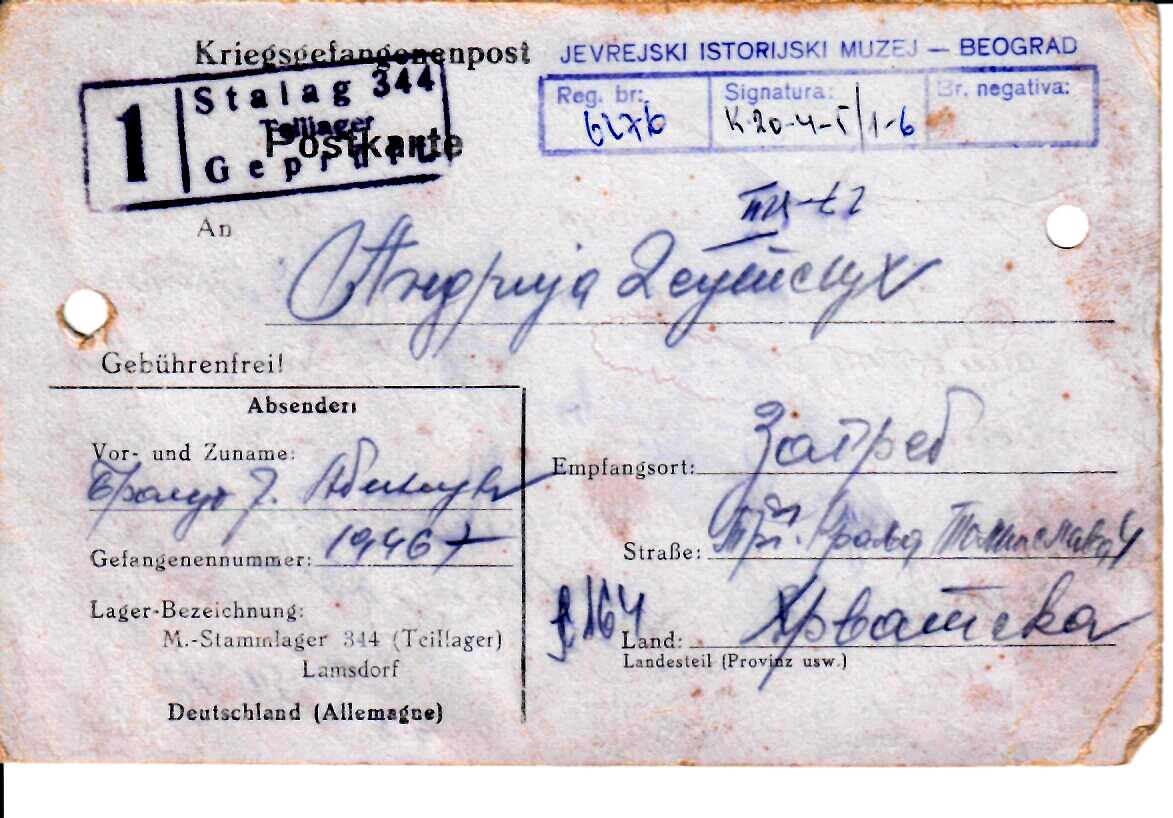 Kriegsgefangenenpost
JEVREJSKI ISTORIJSKI MUZEJ — BEOGRAD
Reg. br:
6276
Signatura:
K-20-4-5/1-6
Br. negativa:
1
Stalag 344
Teillager
Geprüft
Postkarte
An
Андрија
Gebührenfrei!
Absender:
Vor- und Zuname:
Gefangenennummer:
Lager-Bezeichnung:
M.-Stammlager 344 (Teillager)
Lamsdorf
Deutschland (Allemagne)
Empfangsort: Загреб
Straße: Трг. Краља Томислава
Land: Хрватска
Landesteil (Provinz usw.)